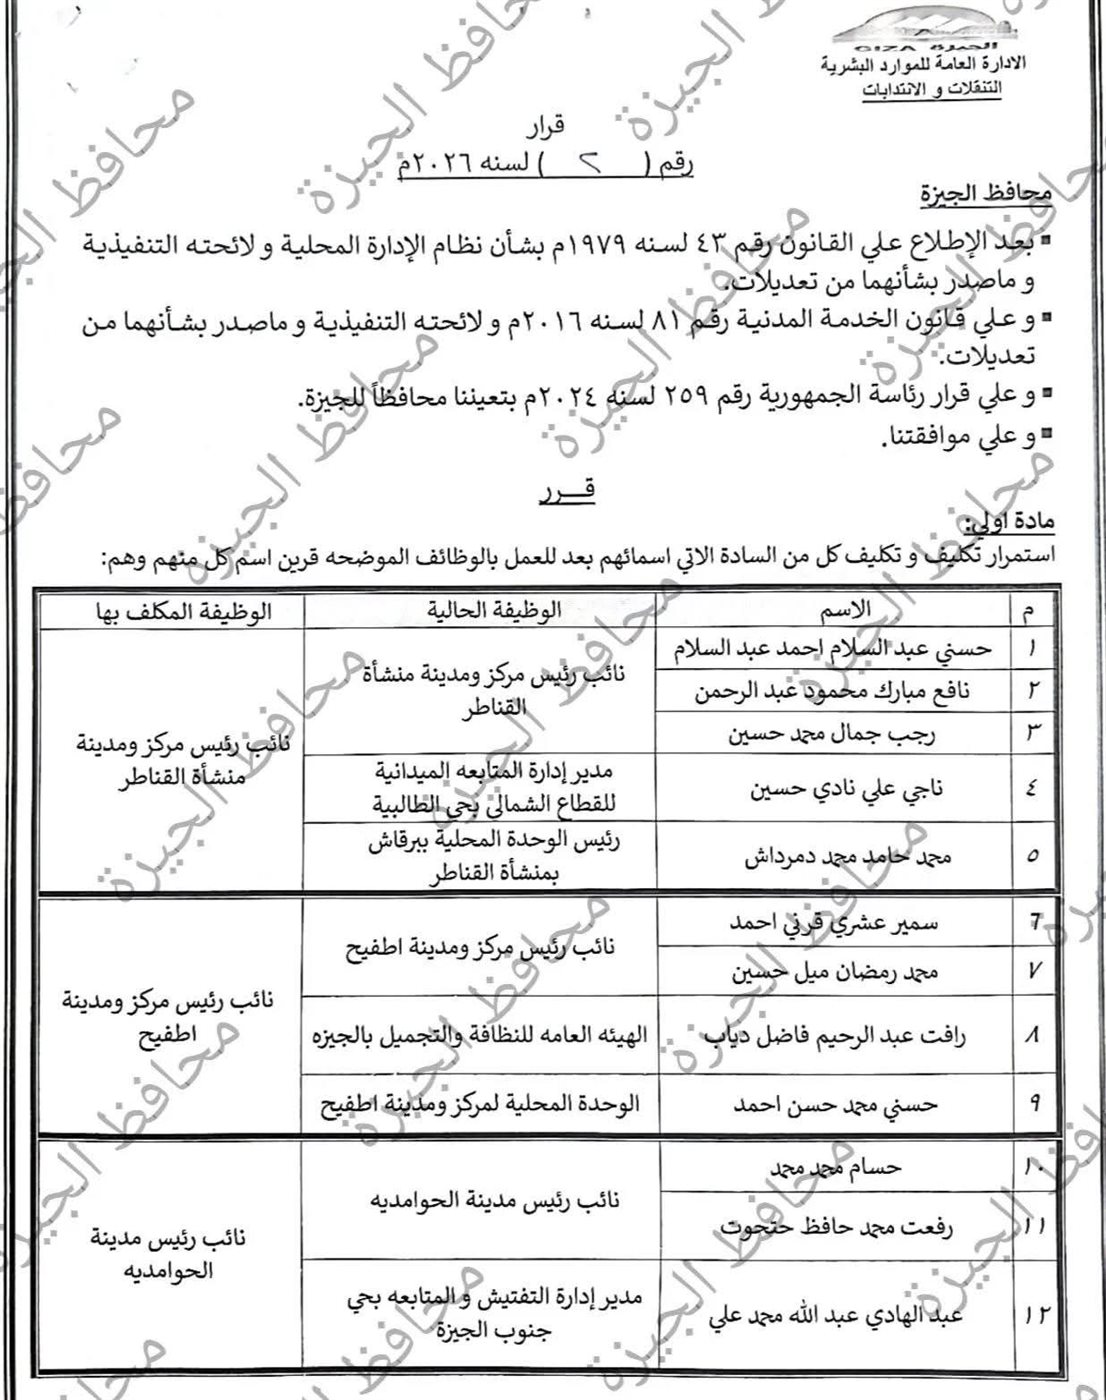 الجيزة GIZA
الادارة العامة للموارد البشرية
التنقلات و الانتدابات
قرار
رقم ( ٢ ) لسنه ٢٠٢٦م
محافظ الجيزة
بعد الإطلاع علي القانون رقم ٤٣ لسنه ١٩٧٩م بشأن نظام الإدارة المحلية و لائحته التنفيذية
و ماصدر بشأنهما من تعديلات.
و علي قانون الخدمة المدنية رقم ٨١ لسنه ٢٠١٦م و لائحته التنفيذية و ماصدر بشأنهما من
تعديلات.
و علي قرار رئاسة الجمهورية رقم ٢٥٩ لسنه ٢٠٢٤م بتعيننا محافظاً للجيزة.
و علي موافقتنا.
قـــرر
مادة اولي:
استمرار تكليف و تكليف كل من السادة الاتي اسمائهم بعد للعمل بالوظائف الموضحه قرين اسم كل منهم وهم:
م الاسم الوظيفة الحالية الوظيفة المكلف بها
١ حسني عبد السلام احمد عبد السلام
نائب رئيس مركز ومدينة منشأة
القناطر
٢ نافع مبارك محمود عبد الرحمن
٣ رجب جمال محمد حسين
نائب رئيس مركز ومدينة
منشأة القناطر
٤ ناجي علي نادي حسين
مدير إدارة المتابعه الميدانية
للقطاع الشمالي بحي الطالبية
٥ محمد حامد محمد دمرداش
رئيس الوحدة المحلية ببرقاش
بمنشأة القناطر
٦ سمير عشري قرني احمد
نائب رئيس مركز ومدينة اطفيح
٧ محمد رمضان ميل حسين
نائب رئيس مركز ومدينة
اطفيح
٨ رافت عبد الرحيم فاضل دياب الهيئه العامه للنظافة والتجميل بالجيزه
٩ حسني محمد حسن احمد الوحدة المحلية لمركز ومدينة اطفيح
١٠ حسام محمد محمد
نائب رئيس مدينة الحوامديه
١١ رفعت محمد حافظ حتحوت
نائب رئيس مدينة
الحوامديه
١٢ عبد الهادي عبد الله محمد علي
مدير إدارة التفتيش و المتابعه بحي
جنوب الجيزة
محافظ الجيزة